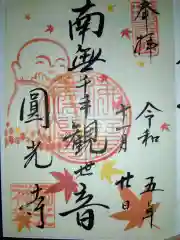 奉拝
令和五年
十一月廿日
南無千手観世音
圓光寺